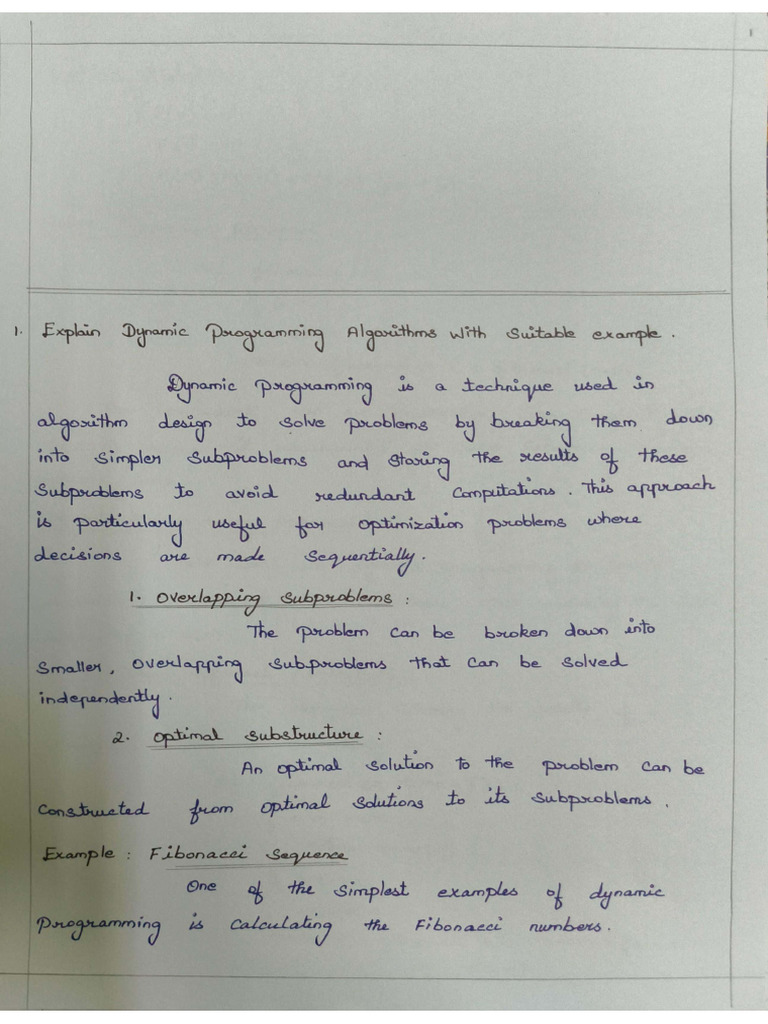 1
1. Explain Dynamic Programming Algorithms with suitable example.
Dynamic programming is a technique used in
algorithm design to solve problems by breaking them down
into simpler subproblems and storing the results of these
subproblems to avoid redundant computations. This approach
is particularly useful for optimization problems where
decisions are made sequentially.
1. Overlapping subproblems :
The problem can be broken down into
smaller, overlapping subproblems that can be solved
independently.
2. Optimal substructure :
An optimal solution to the problem can be
constructed from optimal solutions to its subproblems.
Example : Fibonacci sequence
One of the simplest examples of dynamic
programming is calculating the Fibonacci numbers.